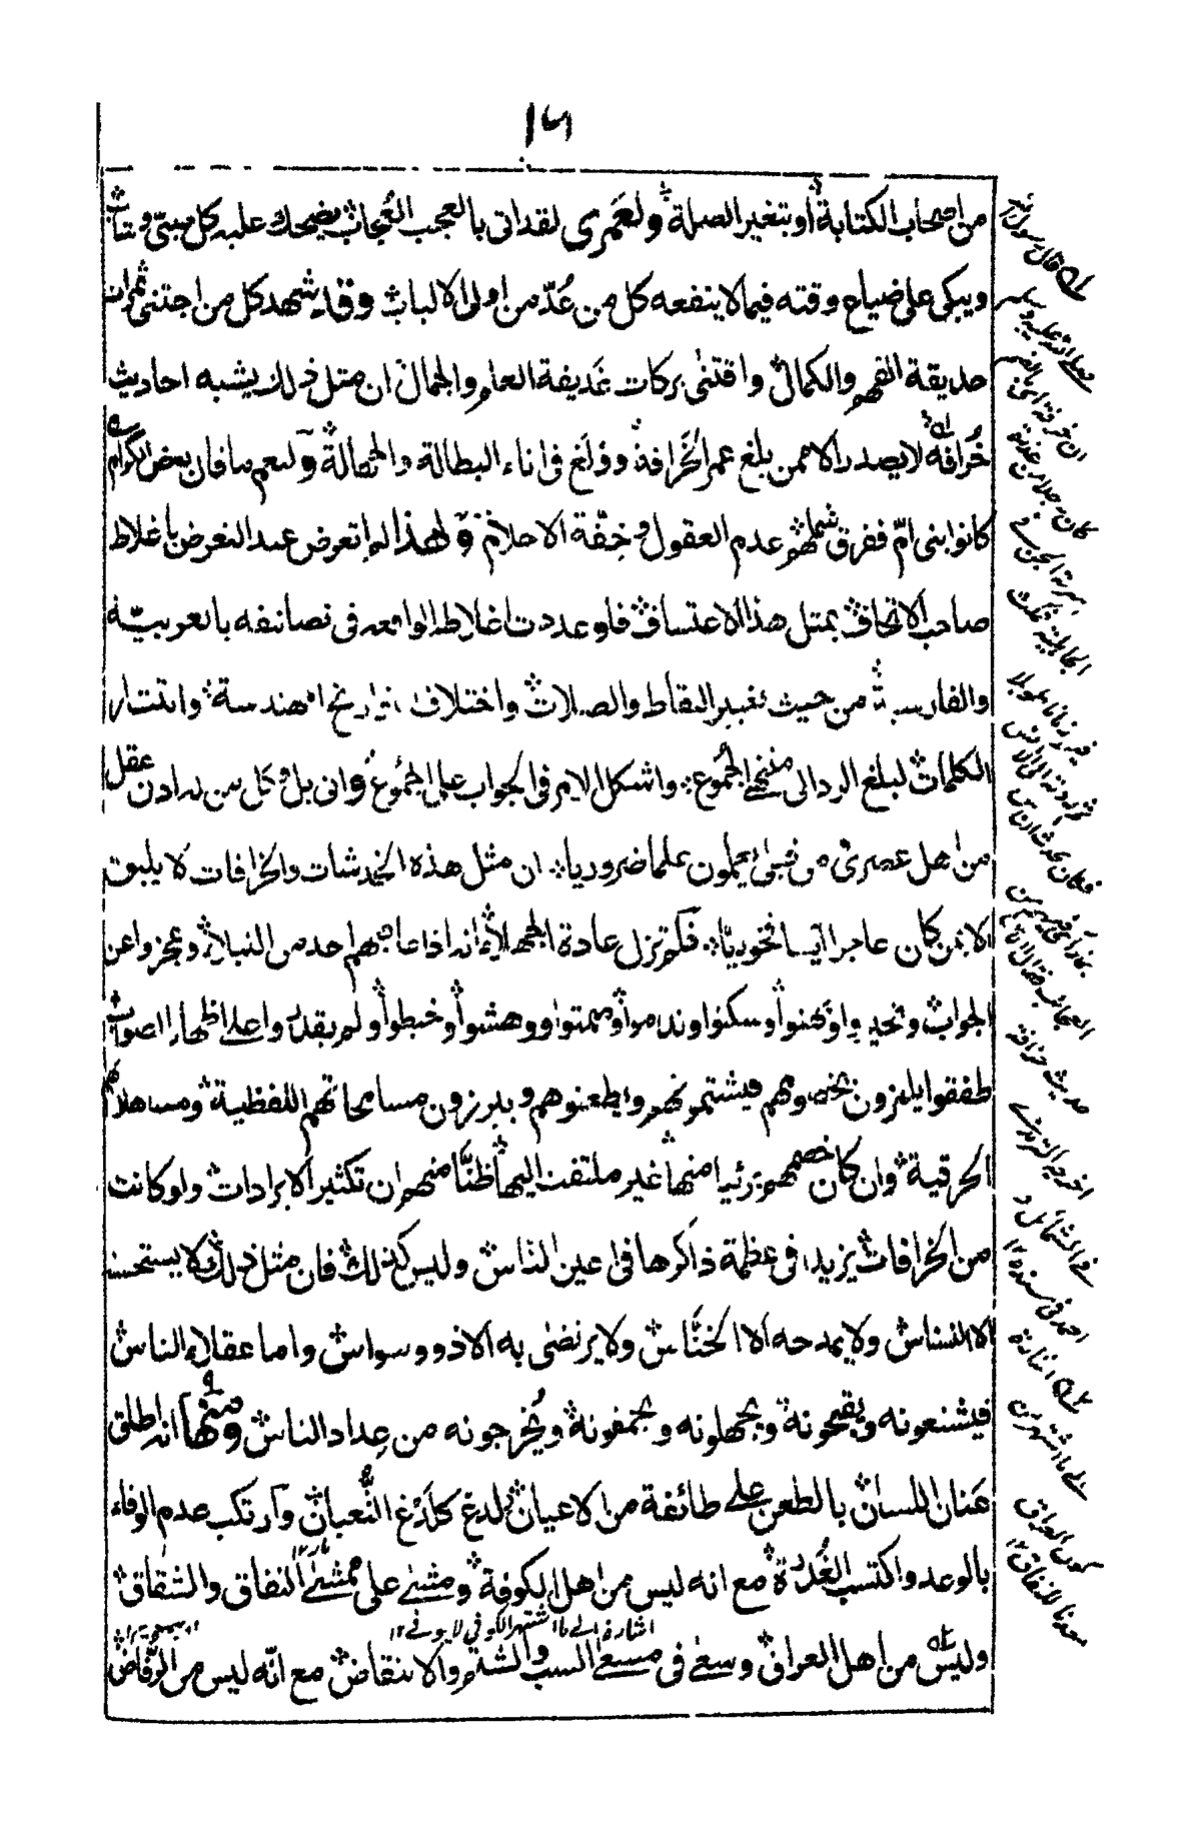 ١٦
من اصحاب الكتابة او بتغير الصلة ولعمري لقد اتى بالعجب العجاب يضحك عليه كل مبتي وتاب
ويبكى على ضياع وقته فيما لا ينفعه كل من عُدّ من اولى الالباب وقد شهد كل من اجتنى ثمرات
حديقة الفهم والكمال واقتنى بركات غديقة العلم والجمال ان مثل ذلك يشبه احاديث
خُرافة لا يصدر الا ممن بلغ عمر الخرافة وولغ فى اناء البطالة والجهالة ولنعم ما قال بعض الكرام
كانوا بنى امّ ففرق شملهم عدم العقول وخفّة الاحلام ولهذا لم اتعرض عند التعرض باغلاط
صاحب الاتحاف بمثل هذا الاعتساف فلو عددت اغلاطه الواقعه فى تصانيفه بالعربيّة
والفارسية من حيث تغير النقاط والصلات واختلاف تواريخ الهندسة وانتشار
الكلمات لبلغ الرد الى منتهى الجموع واشكل الامر فى الجواب على الجموع وانى بل وكل من له ادنى عقل
من اهل عصرى من قبلى يعملون علما ضروريا ان مثل هذه الخدشات والخرافات لا يليق
الا بمن كان عاجرا آيسا نخوديّا فلم تزل عادة الجهلاء انه اذا عابهم احد من النبلاء وعجزوا عن
الجواب وتحيروا وبهتوا وسكتوا وندموا وصمتوا ووهشوا وخبطوا ولم يقدروا على اظهار الصواب
طفقوا يلمزون بخصومهم فيشتمونهم ويطعنوهم ويبرزون مسامحاتهم اللفظية ومساهلاتهم
الحرفية وان كان خصمهم بريّا منها غير ملتفت اليها ظنًّا منهم ان تكثير الايرادات ولو كانت
من الخرافات يزيد فى عظمة ذاكرها فى اعين الناس وليس كذلك فان مثل ذلك لا يستحسنه
الا النسناس ولا يمدحه الا الخنّاس ولا يرتضى به الا ذو وسواس واما عقلاء الناس
فيشنعونه ويقبحونه ويجهلونه ويحمقونه ويُخرجونه من عداد الناس ومنها انه اطلق
عَنان اللسان بالطعن على طائفة من الاعيان لدغ كلَدْغ الثُّعبان وارتكب عدم الوفاء
بالوعد واكتسب الغُدرة مع انه ليس من اهل الكوفة ومشى على ممشى النفاق والشقاق
اشارة الى ما اشتهر الكوفى لا يوفى ١٢
وليس من اهل العراق وسعى فى مسعى السب والشتم والانتقاض مع انّه ليس من الرّفاض
قال رسول
صلى الله عليه وسلم
كان رجلا من عذرة
اسرته الجن فى
الجاهلية فمكث
حديث خرافة
اخرجه الترمذى
فى الشمائل و
احمد فى مسنده ١٢
اشارة
الى ما اشتهر من
كون العراق
معدنا للنفاق ١٢